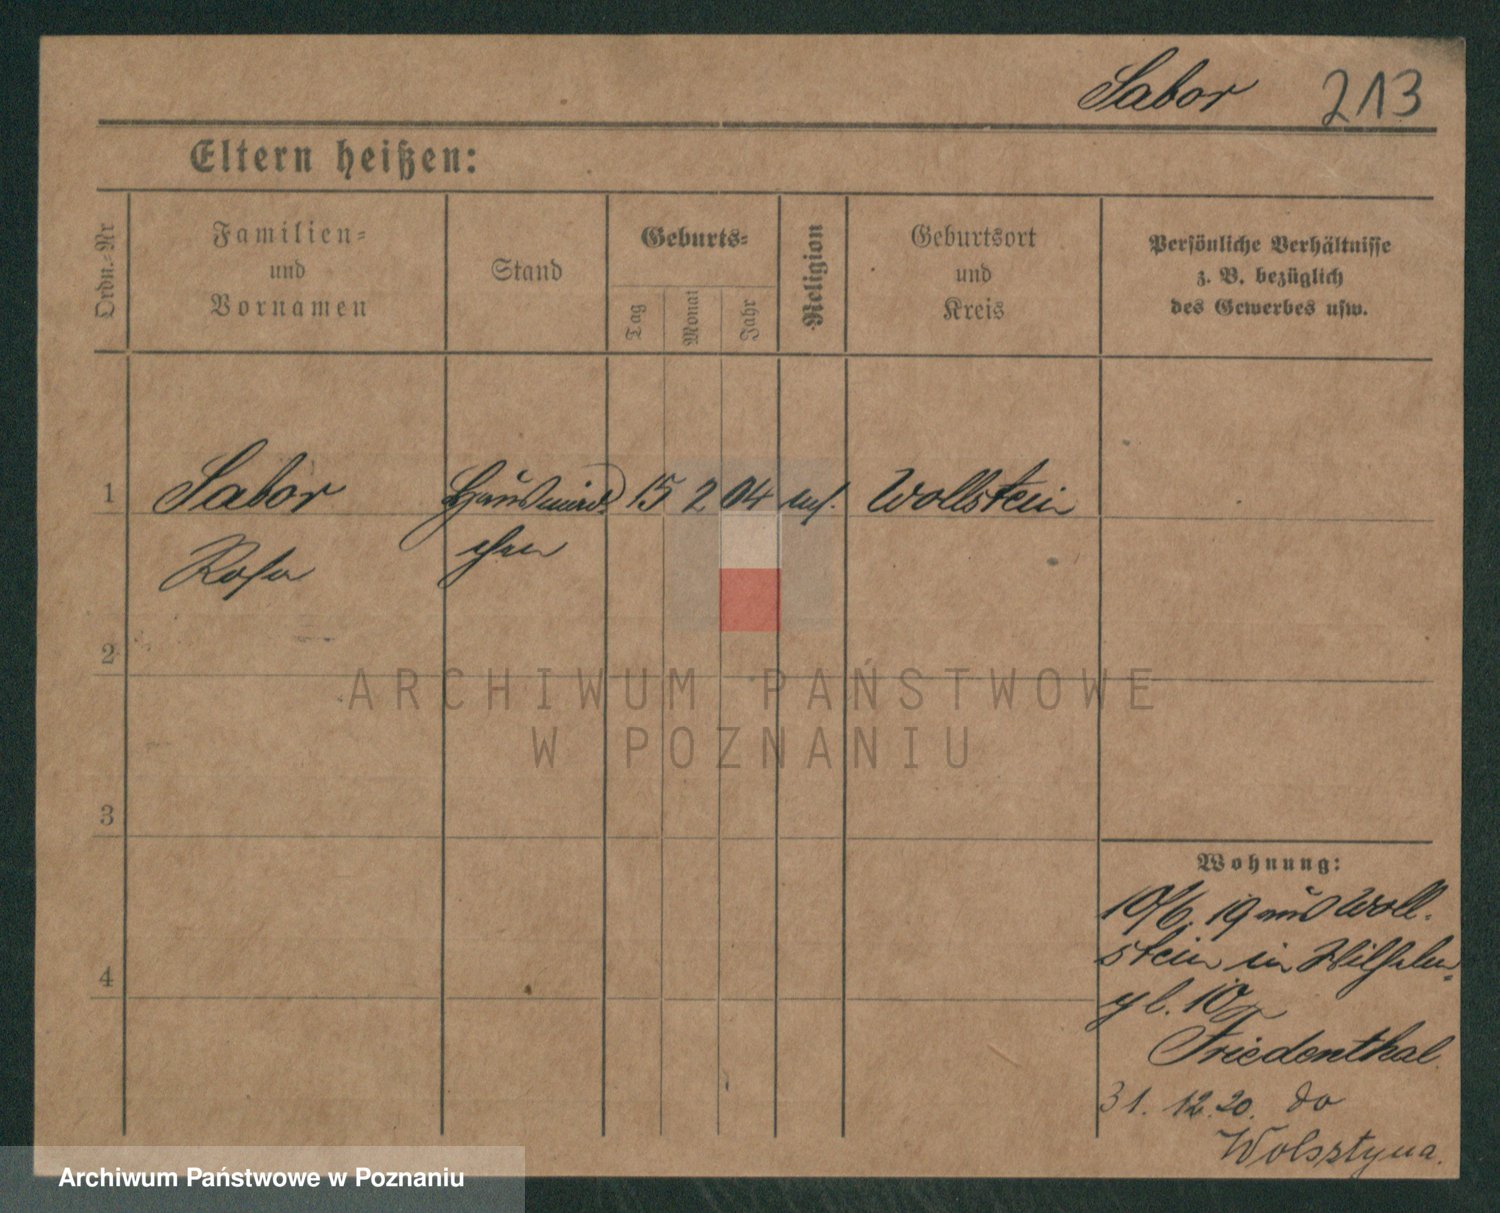 Sabor 213
Eltern heißen:
Ordn.-Nr
Familien-
und
Vornamen
Stand
Geburts-
Tag
Monat
Jahr
Religion
Geburtsort
und
Kreis
Persönliche Verhältnisse
z. B. bezüglich
des Gewerbes usw.
1 Sabor 15 2 04 Wollstein
Rosa
2
3
4
Wohnung:
10/6. 19 aus Woll-
stein in Wilhelm-
pl. 10
Friedenthal
31. 12. 20. do
Wolsztyna.
ARCHIWUM PAŃSTWOWE
W POZNANIU
Archiwum Państwowe w Poznaniu